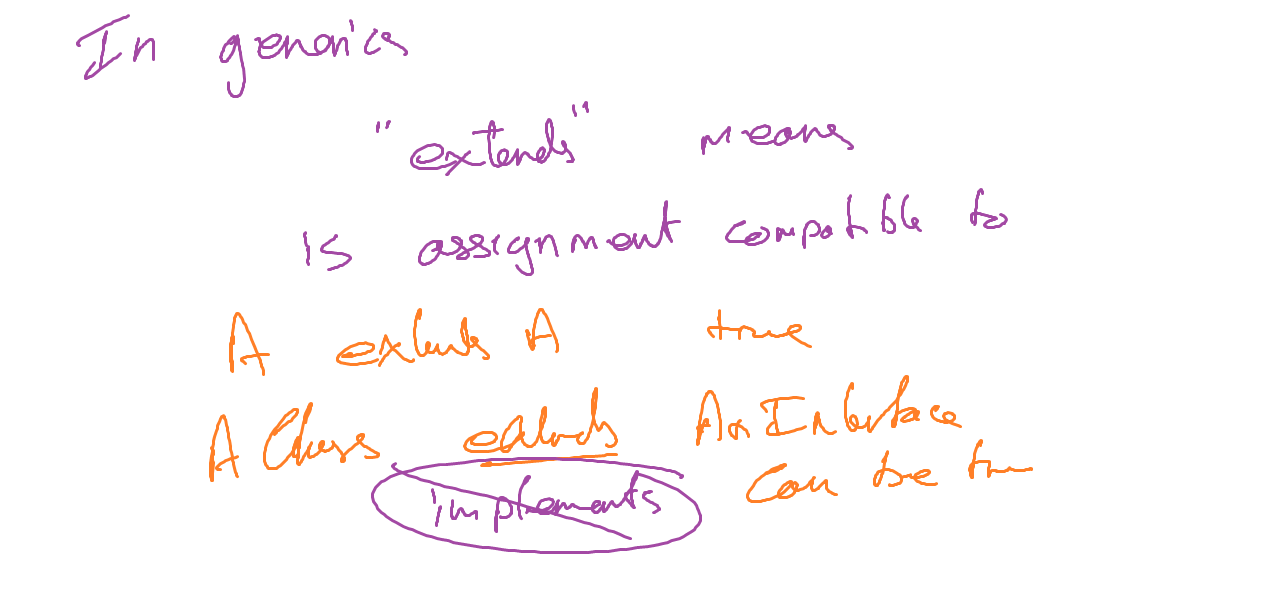 In generics
"extends" means
is assignment compatible to
A extends A true
A Class extends An Interface
implements can be true